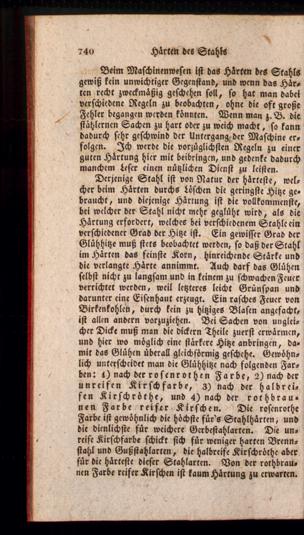 740 Härten des Stahls
Beim Maschinenwesen ist das Härten des Stahls
gewiß kein unwichtiger Gegenstand, und wenn das Här-
ten recht zweckmäßig geschehen soll, so hat man dabei
verschiedene Regeln zu beobachten, ohne die oft große
Fehler begangen werden könnten. Wenn man z. B. die
stählernen Sachen zu hart oder zu weich macht, so kann
dadurch sehr geschwind der Untergang der Maschine er-
folgen. Ich werde die vorzüglichsten Regeln zu einer
guten Härtung hier mit beibringen, und gedenke dadurch
manchem Leser einen nützlichen Dienst zu leisten.
Derjenige Stahl ist von Natur der härteste, wel-
cher beim Härten durchs Löschen die geringste Hitze ge-
braucht, und diejenige Härtung ist die vollkommenste,
bei welcher der Stahl nicht mehr geglüht wird, als die
Härtung erfordert, welches bei verschiedenem Stahle ein
verschiedener Grad der Hitz ist. Ein gewisser Grad der
Glühhitze muß stets beobachtet werden, so daß der Stahl
im Härten das feinste Korn, hinreichende Stärke und
die verlangte Härte annimmt. Auch darf das Glühen
selbst nicht zu langsam und in keinem zu schwachen Feuer
verrichtet werden, weil letzteres leicht Grünspan und
darunter eine Eisenhaut erzeugt. Ein rasches Feuer von
Birkenkohlen, durch kein zu hitziges Blasen angefacht,
ist allen andern vorzuziehen. Bei Sachen von unglei-
cher Dicke muß man die dickern Theile zuerst erwärmen,
und hier wo möglich eine stärkere Hitze anbringen, da-
mit das Glühen überall gleichförmig geschehe. Gewöhn-
lich unterscheidet man die Glühhitze nach folgenden Far-
ben: 1) nach der rosenrothen Farbe, 2) nach der
unreifen Kirschfarbe, 3) nach der halbrei-
fen Kirschröthe, und 4) nach der rothbrau-
nen Farbe reifer Kirschen. Die rosenrothe
Farbe ist gewöhnlich die höchste für's Stahlhärten, und
die dienlichste für weichere Gerbestahlarten. Die un-
reife Kirschfarbe schickt sich für weniger harten Brenn-
stahl und Gußstahlarten, die halbreife Kirschröthe aber
für die härteste dieser Stahlarten. Von der rothbrau-
nen Farbe reifer Kirschen ist kaum Härtung zu erwarten.